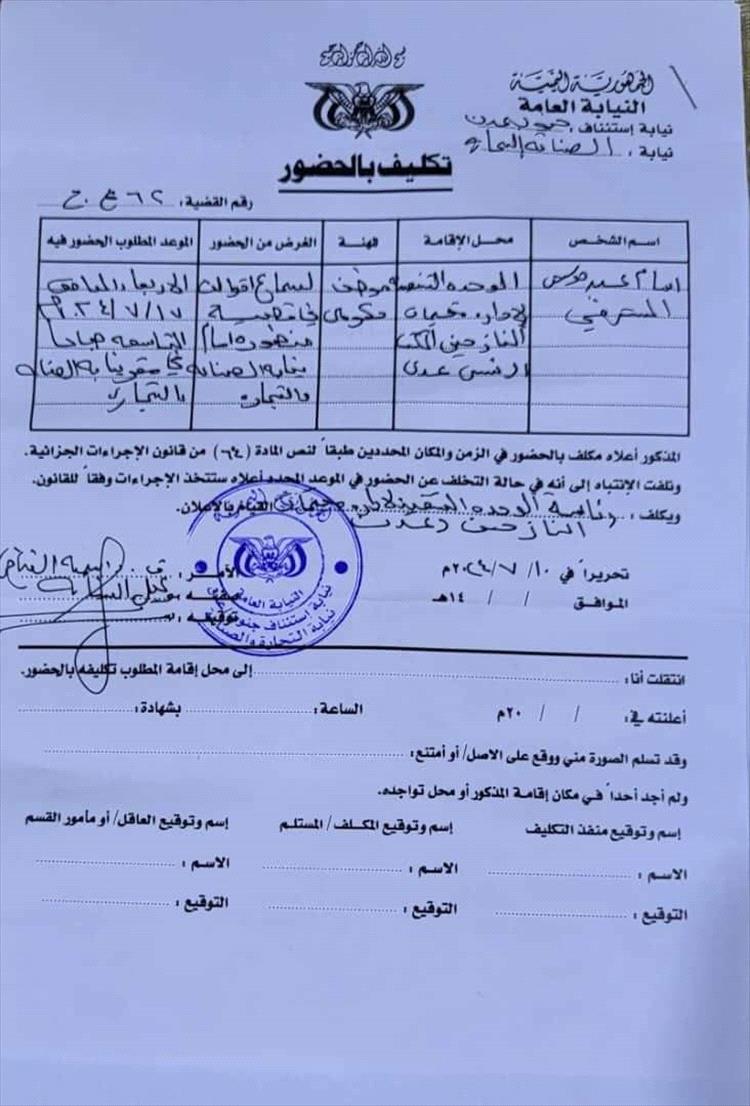 بسم الله الرحمن الرحيم
الجمهورية اليمنية
النيابة العامة
نيابة إستئناف: جنوب عدن
نيابة: الصناعة والتجارة
تكليف بالحضور
رقم القضية: ٦٢ ع.ج
اسم الشخص
محل الإقامة
المهنة
الغرض من الحضور
الموعد المطلوب الحضور فيه
الوحده التنفيذيه
لاداره مخيمات
النازحين المكتب
الرئيسي عدن
موظف
حكومي
لسماع اقوالك
في قضية
منظورة امام
نيابة الصناعة
والتجاره
الاربعاء الموافق
٢٠٢٤/٧/١٧م
التاسعه صباحا
في مقر نيابة الصناعه
والتجارة
المذكور أعلاه مكلف بالحضور في الزمن والمكان المحددين طبقاً لنص المادة (٦٤) من قانون الإجراءات الجزائية.
ونلفت الإنتباه إلى أنه في حالة التخلف عن الحضور في الموعد المحدد أعلاه ستتخذ الإجراءات وفقاً للقانون.
ويكلف: رئاسة الوحده التنفيذيه لاداره مخيمات القيام بالإعلان.
النازحين عدن
تحريراً في ١٠/ ٧/ ٢٠٢٤م
الموافق / / ١٤هـ
الآمر:
صفته: وكيل النيابة
توقيعه:
الجمهورية اليمنية
النيابة العامة
نيابة إستئناف جنوب عدن
نيابة التجارة والصناعة
انتقلت أنا: إلى محل إقامة المطلوب تكليفه بالحضور.
أعلنته في: / / ٢٠م الساعة: بشهادة:
وقد تسلم الصورة مني ووقع على الاصل/ أو أمتنع:
ولم أجد أحداً في مكان إقامة المذكور أو محل تواجده.
إسم وتوقيع منفذ التكليف
إسم وتوقيع المكلف/ المستلم
إسم وتوقيع العاقل/ أو مأمور القسم
الاسم:
الاسم:
الاسم:
التوقيع:
التوقيع:
التوقيع: